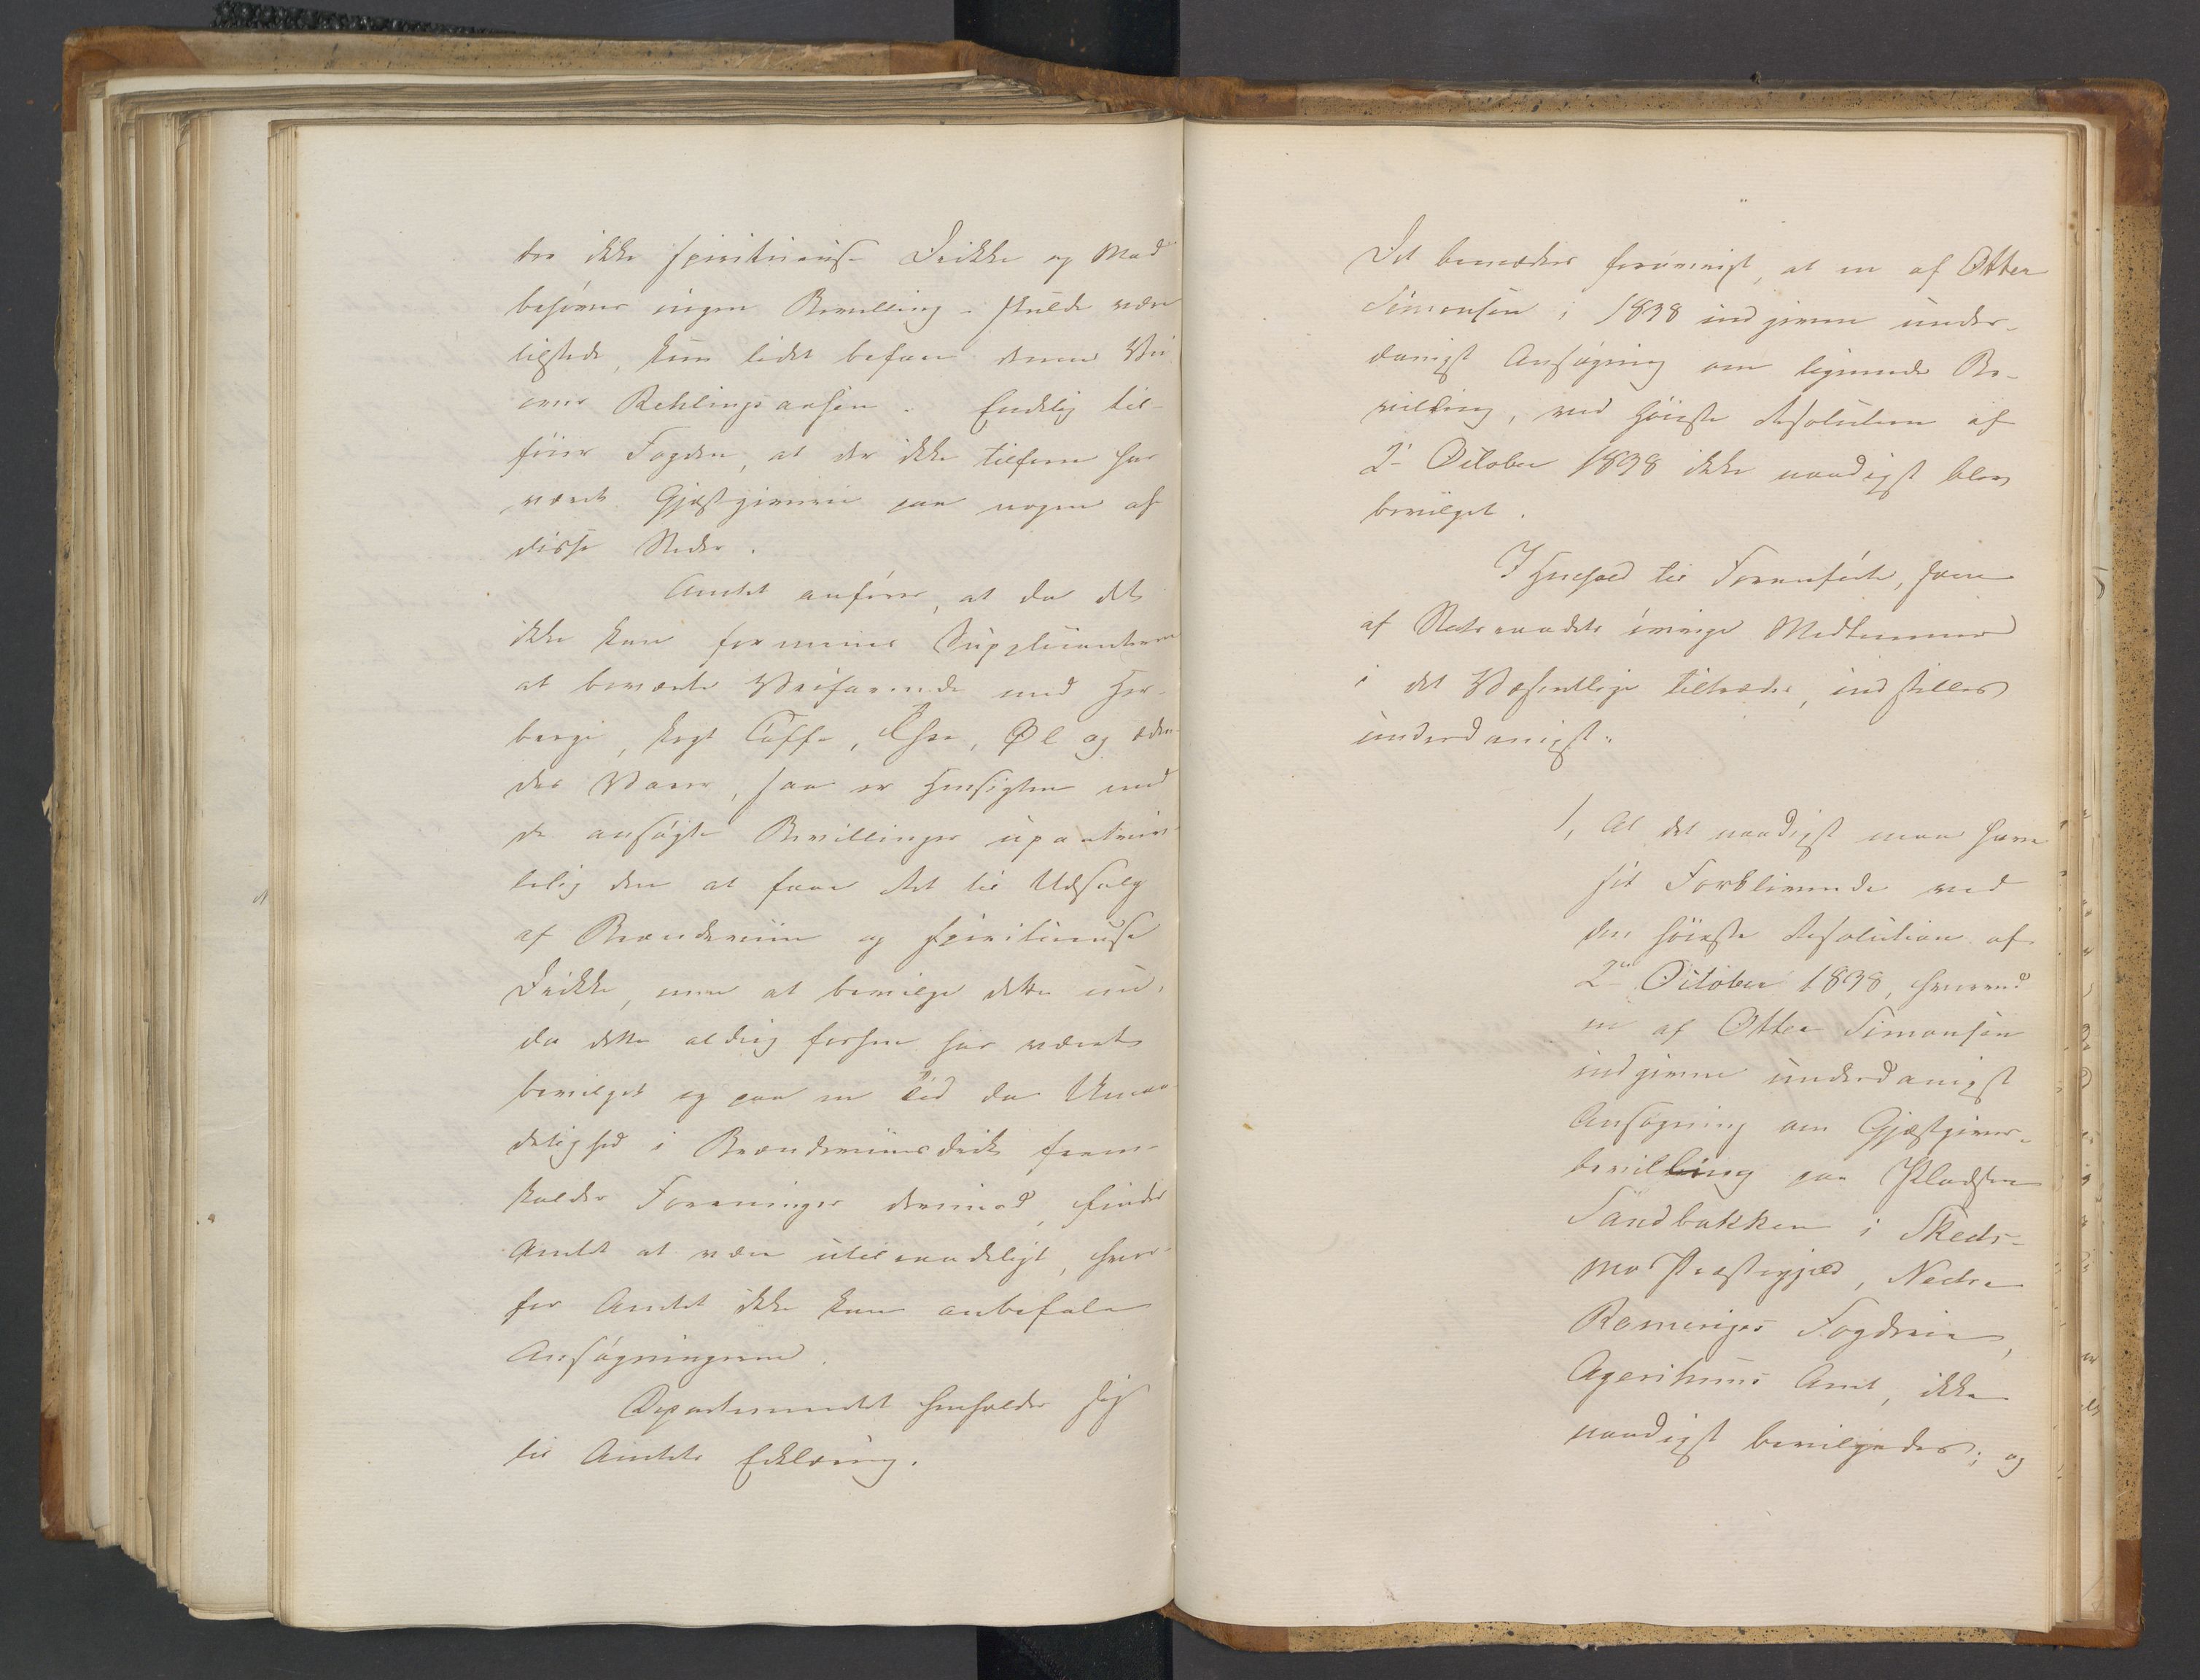 der ikke spirituøuse Drikke og Mad
behøves ingen Bevilling – skulde være
tilstede, kun lidet befare denne Vei
over Rehlingsaasen. Endelig til-
føier Fogden, at der ikke tilforn har
været Gjæstgiveri paa nogen af
disse Steder.
Amtet anfører, at da det
ikke kan formenes Supplicanterne
at beværte Veifarende med Her-
berge, kogt Caffe, Thee, Øl og æden-
des Varer, saa er Hensigten med
de ansøgte Bevillinger upaatviv-
lelig den at faae Ret til Udsalg
af Brændeviin og spirituøuse
Drikke, men at bevilge dette nu,
da dette aldrig forhen har været
bevilget og paa en Tid da Umaa-
delighed i Brændeviinsdrik frem-
kalder Foreninger derimod, finder
Amtet at være utilraadeligt, hvor-
for Amtet ikke kan anbefale
Ansøgningerne.
Departementet henholder sig
til Amtets Erklæring.
Det bemærkes forøvrigt, at en af Otter
Simonsen i 1838 indgiven under-
danigst Ansøgning om lignende Be-
villing, ved høieste Resolution af
2. October 1838 ikke naadigst blev
bevilget.
I Henhold til Foranførte, som
af Statsraadets øvrige Medlemmer
i det Væsentlige tiltrædes, indstilles
underdanigst:
1, At det naadigst maa have
sit Forblivende ved
den høieste Resolution af
2den October 1838, hvorved
en af Otter Simonsen
indgiven underdanigst
Ansøgning om Gjæstgiver-
bevilling paa Pladsen
Sandbakken i Skeds-
mo Præstegjeld, Nedre
Romeriges Fogderie,
Agershuus Amt, ikke
naadigst bevilgedes; og